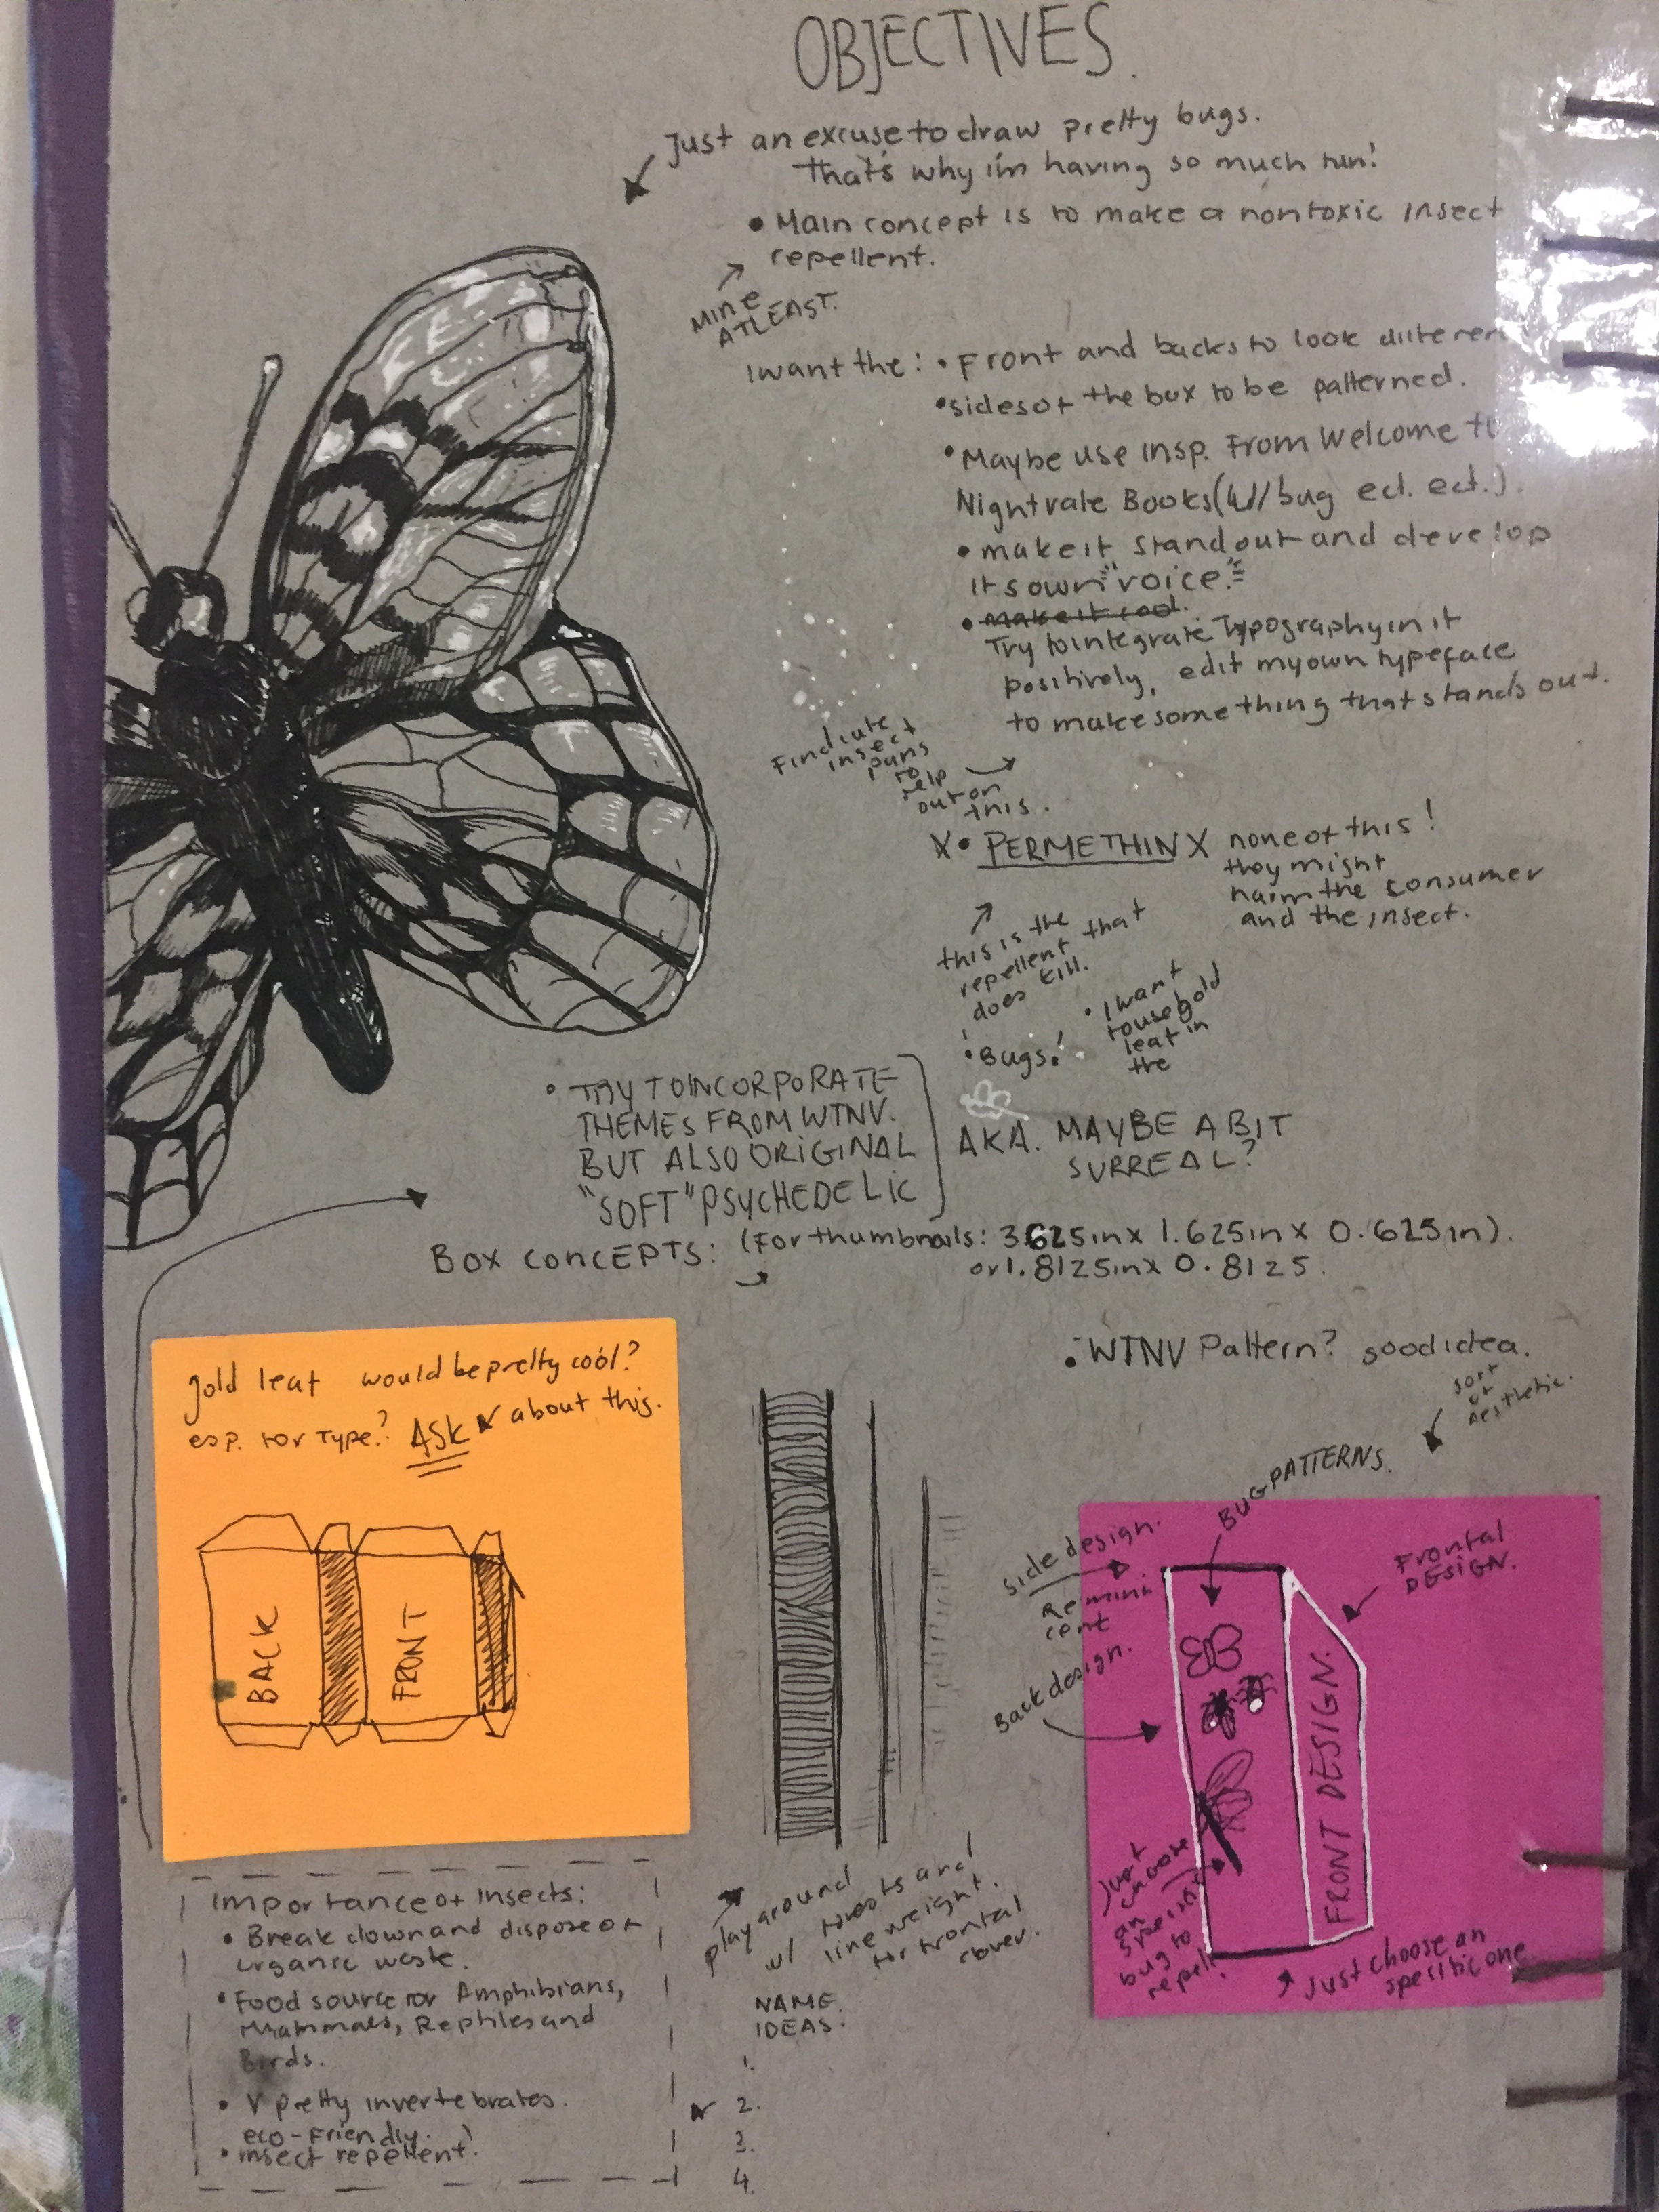 OBJECTIVES.
Just an excuse to draw pretty bugs.
that's why i'm having so much fun!
• Main concept is to make a nontoxic insect
repellent.
MINE
ATLEAST.
I want the: • Front and backs to look differen
• sides of the box to be patterned.
• Maybe use insp. From Welcome t
Nightvale Books (w/ bug ect. ect.).
• make it stand out and develop
its own "voice."
• make it cool.
Try to integrate Typography in it
positively, edit my own typeface
to make something that stands out.
Find cute
insect
puns
to
help
out on
this.
X • PERMETHIN X none of this!
they might
harm the consumer
and the insect.
this is the
repellent that
does kill.
• Bugs!
• I want
to use gold
leaf in
the
• TRY TO INCORPORATE
THEMES FROM WTNV.
BUT ALSO ORIGINAL
"SOFT" PSYCHEDELIC
AKA. MAYBE A BIT
SURREAL?
BOX CONCEPTS: (For thumbnails: 3.625in x 1.625in x 0.625in).
or 1.8125in x 0.8125.
gold leaf would be pretty cool?
esp. for Type? ASK about this.
BACK
FRONT
• WTNV Pattern? good idea.
sort
of
Aesthetic.
BUG PATTERNS.
Side design.
Remini
cent
Back design.
Frontal
DESIGN.
FRONT DESIGN.
Just
choose
an
specific
bug to
repel!
Just choose an
specific one
play around
w/ and
line weight.
for frontal
cover.
Importance of Insects:
• Break down and dispose of
organic waste.
• Food source for Amphibians,
Mammals, Reptiles and
Birds.
• V pretty invertebrates.
eco-friendly.
• insect repellent!
NAME
IDEAS:
1.
2.
3.
4.